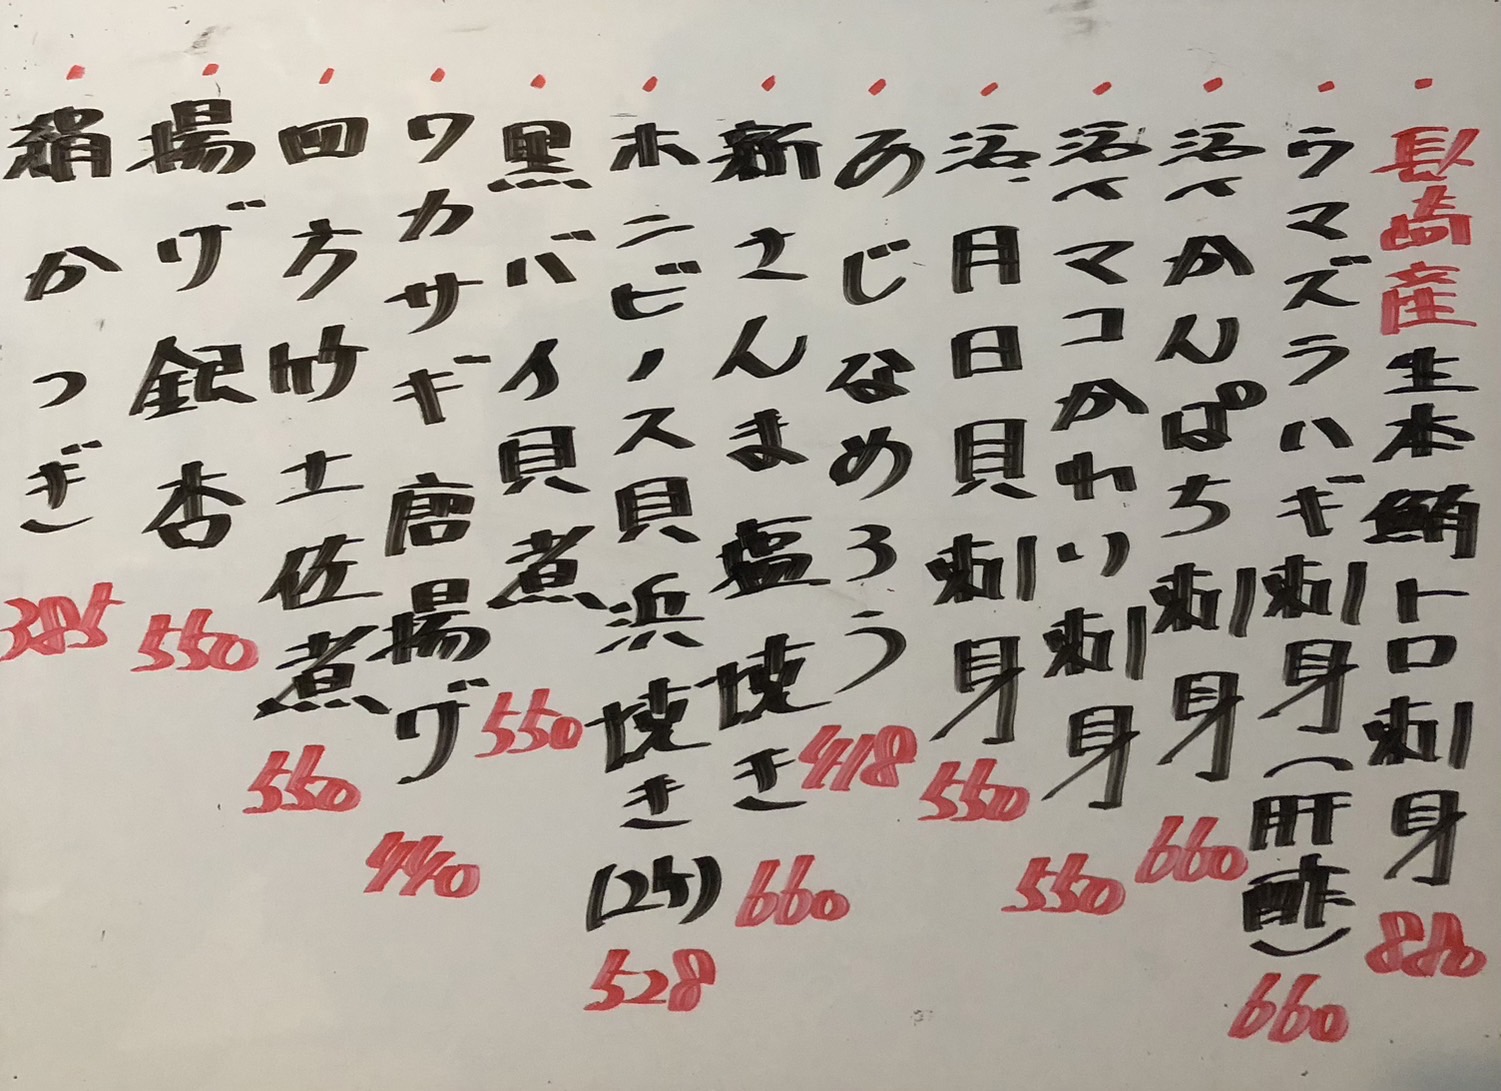 長崎産生本鮪トロ刺身 880
ウマズラハギ刺身(肝酢) 660
活〆かんぱち刺身 660
活〆マコかれい刺身 550
活月日貝刺身 550
あじなめろう 418
新さんま塩焼き 660
ホンビノス貝浜焼き(2ケ) 528
黒バイ貝煮 550
ワカサギ唐揚げ 440
四方竹土佐煮 550
揚げ銀杏 550
絹かつぎ 385